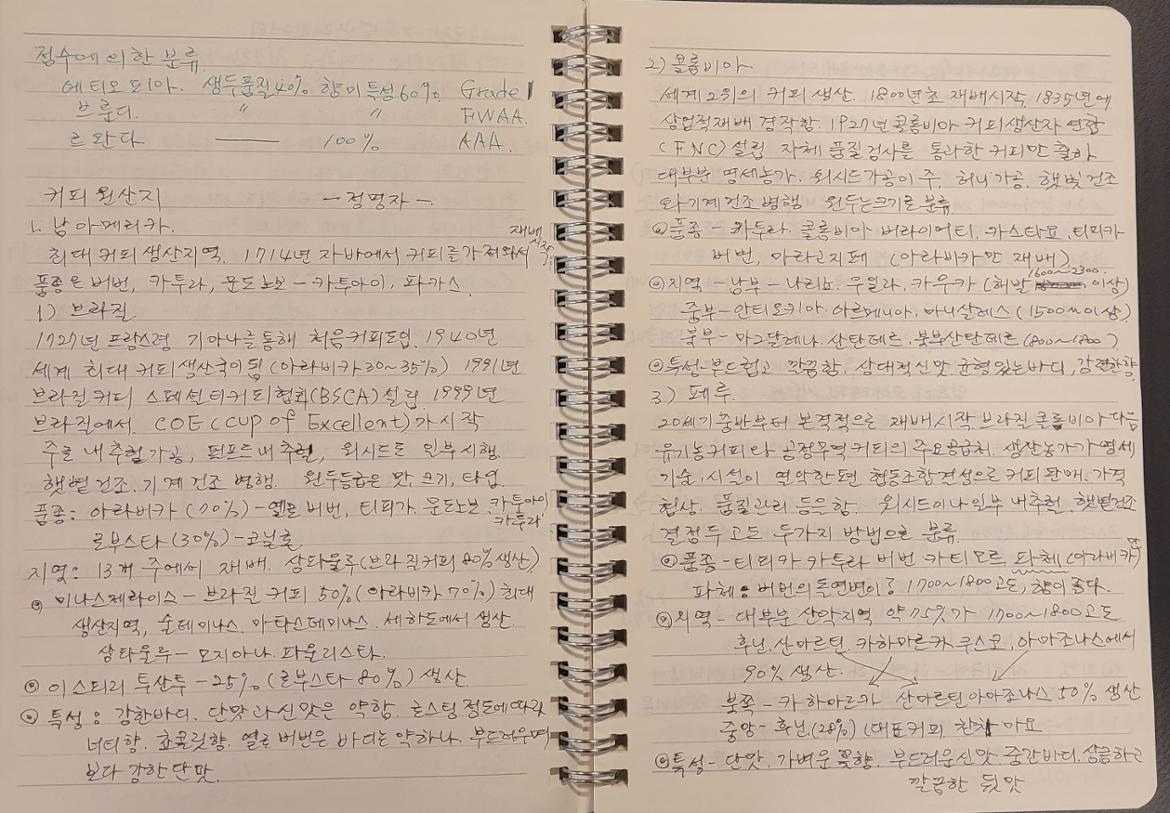 점수에 의한 분류.
에티오피아. 생두품질 40% 향미특성 60% Grade 1
브룬디. 〃 〃 FWAA.
르완다 —— 100% AAA.
커피 원산지 - 정명자 -
1. 남아메리카. 재배
최대 커피 생산지역. 1714년 자바에서 커피를 가져와서 시작
품종은 버번, 카투라, 문도노보 - 카투아이, 파카스.
1) 브라질
1727년 프랑스령 기아나를 통해 처음 커피 도입. 1940년
세계 최대 커피생산국이 됨 (아라비카 30~35%) 1991년
브라질커피 스페셜티커피협회(BSCA) 설립. 1999년
브라질에서. COE (CUP of Excellent)가 시작
주로 내추럴 가공, 펄프드 내추럴, 워시드도 일부 시행.
햇볕건조. 기계건조 병행. 원두등급은 맛, 크기, 타입.
품종: 아라비카 (70%) - 옐로 버번, 티피카. 문도노보. 카투아이
카투라
로부스타 (30%) - 코닐론
지역: 13개 주에서 재배. 상파울루(브라질커피 80% 생산)
◎ 미나스제라이스 - 브라질 커피 50% (아라비카 70%) 최대
생산지역, 술데미나스. 마타스데미나스. 세하도에서 생산.
상파울루 - 모지아나. 파울리스타.
◎ 이스피리투산투 - 25% (로부스타 80%) 생산
◎ 특성: 강한바디. 단맛과 신맛은 약함. 로스팅 정도에 따라
너티향. 초콜릿향. 옐로 버번은 바디는 약하나. 부드러우며
보다 강한 단맛.
2) 콜롬비아.
세계 2위의 커피 생산. 1800년초 재배시작. 1835년에
상업적재배 경작함. 1927년 콜롬비아 커피생산자 연합
(FNC) 설립 자체 품질검사를 통과한 커피만 출하
대부분 영세농가. 워시드가공이 주, 허니 가공. 햇빛 건조
와 기계건조 병행 원두는 크기로 분류.
◎ 품종 - 카투라. 콜롬비아 버라이어티. 카스타요. 티피카
버번, 마라고지페 (아라비카만 재배)
1600~2300.
◎ 지역 - 남부 - 나리뇨. 우일라. 카우카 (해발 이상)
중부 - 안티오키아. 아르메니아. 마니살레스 (1500m 이상)
북부 - 마그달레나. 산탄데르. 북부산탄데르 (800~1800)
◎ 특성 - 부드럽고 깔끔함. 상대적 신맛 균형있는 바디, 강렬한 향
3) 페루.
20세기 중반부터 본격적으로 재배시작. 브라질 콜롬비아 다음
유기농커피와 공정무역 커피의 주요공급처. 생산농가가 영세
기술, 시설이 열악한 편 협동조합결성으로 커피 판매. 가격
협상. 품질관리 등은 함. 워시드이나 일부 내추럴. 햇볕건조
결점두 고도 두가지 방법으로 분류.
◎ 품종 - 티피카 카투라 버번 카티모르 파체 (아라비카만)
파체: 버번의 돌연변이종 1700~1800고도, 향이 좋다.
◎ 지역 - 대부분 산악지역 약 75%가 1700~1800고도
후닌. 산마르틴. 카하마르카. 쿠스코. 아마조나스에서
90% 생산.
북쪽 - 카하마르카 산마르틴 아마조나스 50% 생산
중앙 - 후닌. (28%) (대표커피 찬차마요
◎ 특성 - 단맛. 가벼운 꽃향. 부드러운 신맛. 중간바디. 상큼하고
깔끔한 뒷맛